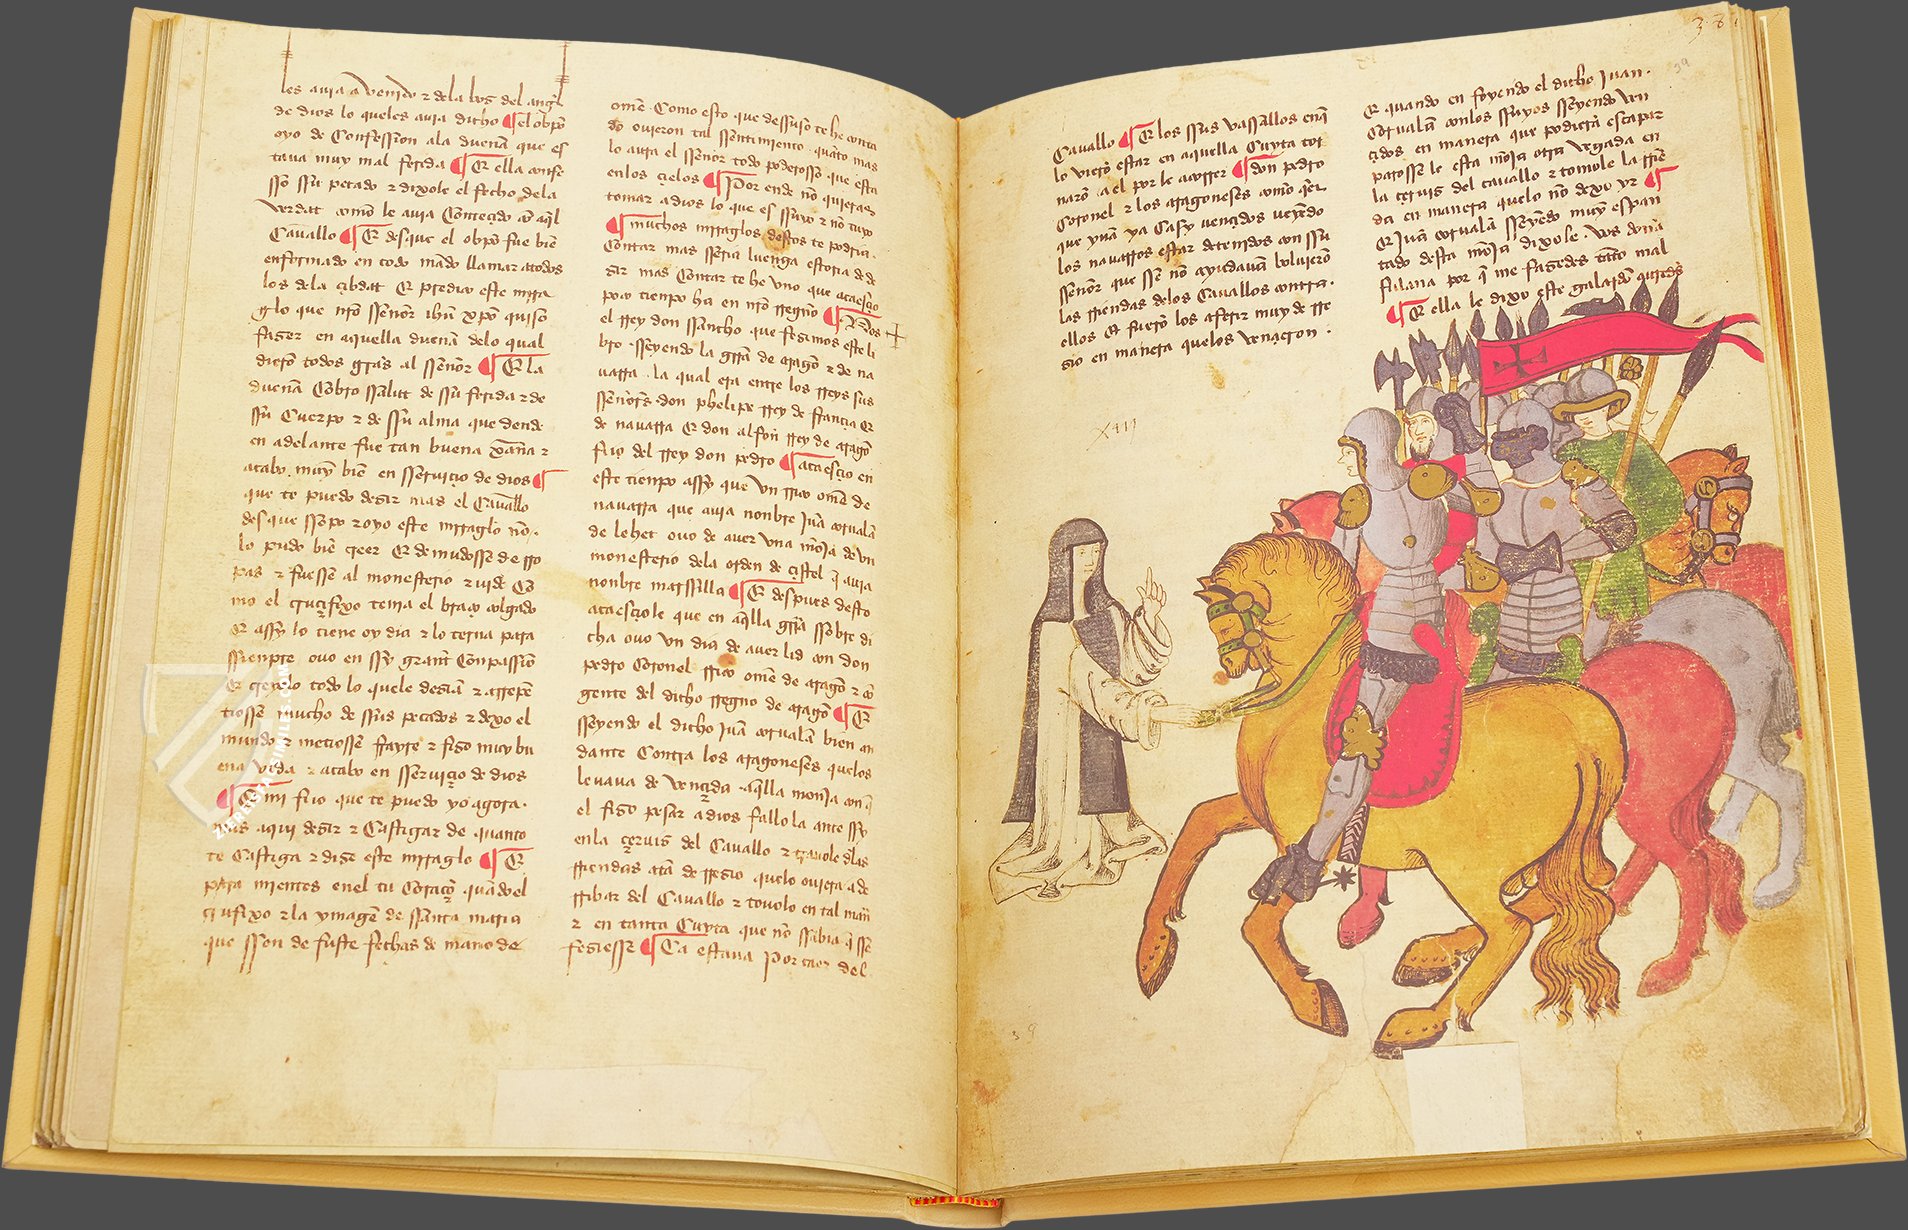 les auia a venido z dela bos del angl
de dios lo queles auia dicho ¶ el obpo
oyo de Confession ala duena que es
taua muy mal ferida ¶ E ella confe
sso ssu pecado z dixole el fecho dela
verdat como le auia Contecido con aql
Cauallo ¶ E desque el obpo fue bien
enformado en todo mando llamar atodos
los dela cibdat E predico este mira
glo que nro sseñor ihu xpo quiso
faser en aquella duena delo qual
dieron todos gras al sseñor ¶ E la
duena Cobro ssalut de ssu ferida z de
ssu Cuerpo z de ssu alma que dende
en adelante fue tan buena xana z
acabo muy bien en sseruicio de dios ¶
que te puedo desir mas el Cauallo
desque ssopo z oyo este miraglo no
lo pudo bien creer E demudosse de rro
pas z fuesse al monesterio z vido Co
mo el crucifixo tenia el braço colgado
E assy lo tiene oy dia z lo terna para
ssienpre ouo en ssy grant Conpassion
E creyolo todo lo quele desian z arrepen
tiosse mucho de ssus pecados z dexo el
mundo z metiosse frayre z fiso muy bu
ena vida z acabo en sseruicio de dios
¶ E mi fijo que te puedo yo agora
mas aqui desir z Castigar de quanto
te Castiga z dise este miraglo ¶ E
para mientes enel tu Coraçon quando el
crufixo z la ymagen de ssanta maria
que sson de fuste fechas de mano de
ome Como esto que dessuso te he conta
do ouieron tal ssentimiento quanto mas
lo aura el señor todo poderosso que esta
enlos çielos ¶ Por ende no quieras
tomar a dios lo que es ssuyo z no tuyo
¶ muchos miraglos destos te podria
Contar mas sseria luenga estoria de de
sir mas Contar te he vno que acaesçio
poco tiempo ha en nro rregno ¶ Nos
el rrey don ssancho que fesimos este li
bro sseyendo la grra de aragon z de na
uarra la qual era entre los rreys sus
sseñors don phelipe rrey de françia E
de nauarra E don alfon rrey de aragon
fijo del rrey don pedro ¶ acaesçio en
este tienpo assy que vn rrico ome de
nauarra que auia nonbre Jua corualan
de lehet ouo de auer vna moja de vn
monesterio dela orden de çistel q auia
nonbre marssilla ¶ E despues desto
acaesçiole que en aqlla grra ssobre di
cha ouo vn dia de auer lid con don
pedro Coronel rrico ome de aragon z co
gente del dicho rregno de aragon ¶ E
sseyendo el dicho Jua corualan bien an
dante Contra los aragoneses quelos
leuaua de vençida aqlla monja con q
el fiso pesar a dios fallola ante ssy
enla çeruis del Cauallo z trauole dlas
rriendas ata de rresio quelo ouiera a de
rribar del Cauallo z touolo en tal man
z en tanta Cuyta que no ssabia q sse
fesiesse ¶ Ca estaua por caer del
38
39
Cauallo ¶ E los ssus vassallos enq
lo viero estar en aquella Cuyta tor
naron a el por le acorrer ¶ don pedro
Coronel z los aragoneses como qer
que yuan ya Casy vençidos veyendo
los nauarros estar detenidos con ssu
sseñor que sse no ayudauan boluiero
las rriendas delos Cauallos contra
ellos E fuero los aferir muy de rre
sio en manera quelos vençieron
E quando en foyendo el dicho Juan
Corualan conlos ssuyos sseyendo ven
çidos en manera que podiera escapar
parosse le esta moja otra vegada en
la çeruis del cauallo z tomole la rrie
da en manera quelo no dexo yr ¶
E Jua corualan sseyendo muy espan
tado desta moja dixole vos dona
fulana por q me fasedes tanto mal
¶ E ella le dixo este galardon qredes
xiij
39